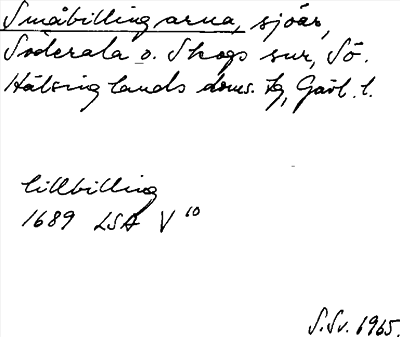 Småbillingarna, sjöar,
Söderala o. Skogs snr, Sö.
Hälsinglands doms. tg, Gävl. l.
lillbilling
1689 LSA V 10
S.Sv. 1965.